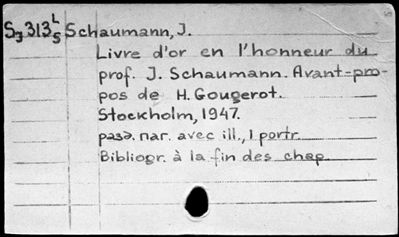 S3 313 L/5 Schaumann, J.
Livre d'or en l'honneur du
prof. J. Schaumann. Avant-pro-
pos de H. Gougerot.
Stockholm, 1947.
разд. паг. avec ill., 1 portr.
Bibliogr. à la fin des chap.